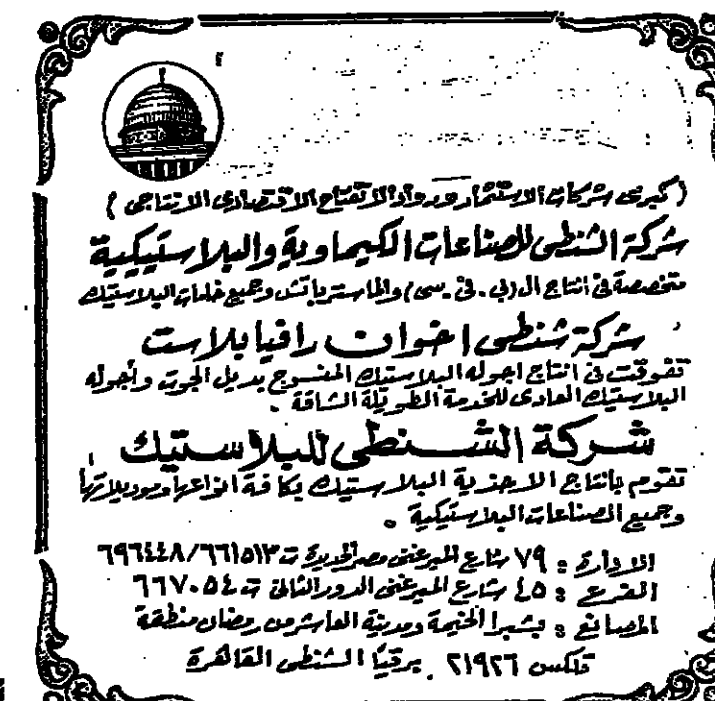 ( كبرى شركات الاستثمار ورواد الانفتاح الاقتصادى الانتاجى )
شركة الشنطى للصناعات الكيماوية والبلاستيكية
متخصصة فى انتاج ال (بى . فى . سى) والماستر باتش وجميع خامات البلاستيك
شركة شنطى اخوان رافيا بلاست
تفوقت فى انتاج اجوله البلاستيك المنسوج بديل الجوت وأجوله
البلاستيك العادى للخدمة الطويلة الشاقة .
شركة الشنطى للبلاستيك
تقوم بانتاج الاحذية البلاستيك بكافة انواعها وموديلاتها
وجميع الصناعات البلاستيكية .
الادارة : ٧٩ شارع الميرغنى مصر الجديدة ت ٦٦١٥١٣/٦٩٦٤٤٨
الفرع : ٤٥ شارع الميرغنى الدور الثانى ت ٦٦٧٠٥٤
المصانع : بشبرا الخيمة ومدينة العاشر من رمضان منطقة
تلكس ٢١٩٢٦ برقيا الشنطى القاهرة